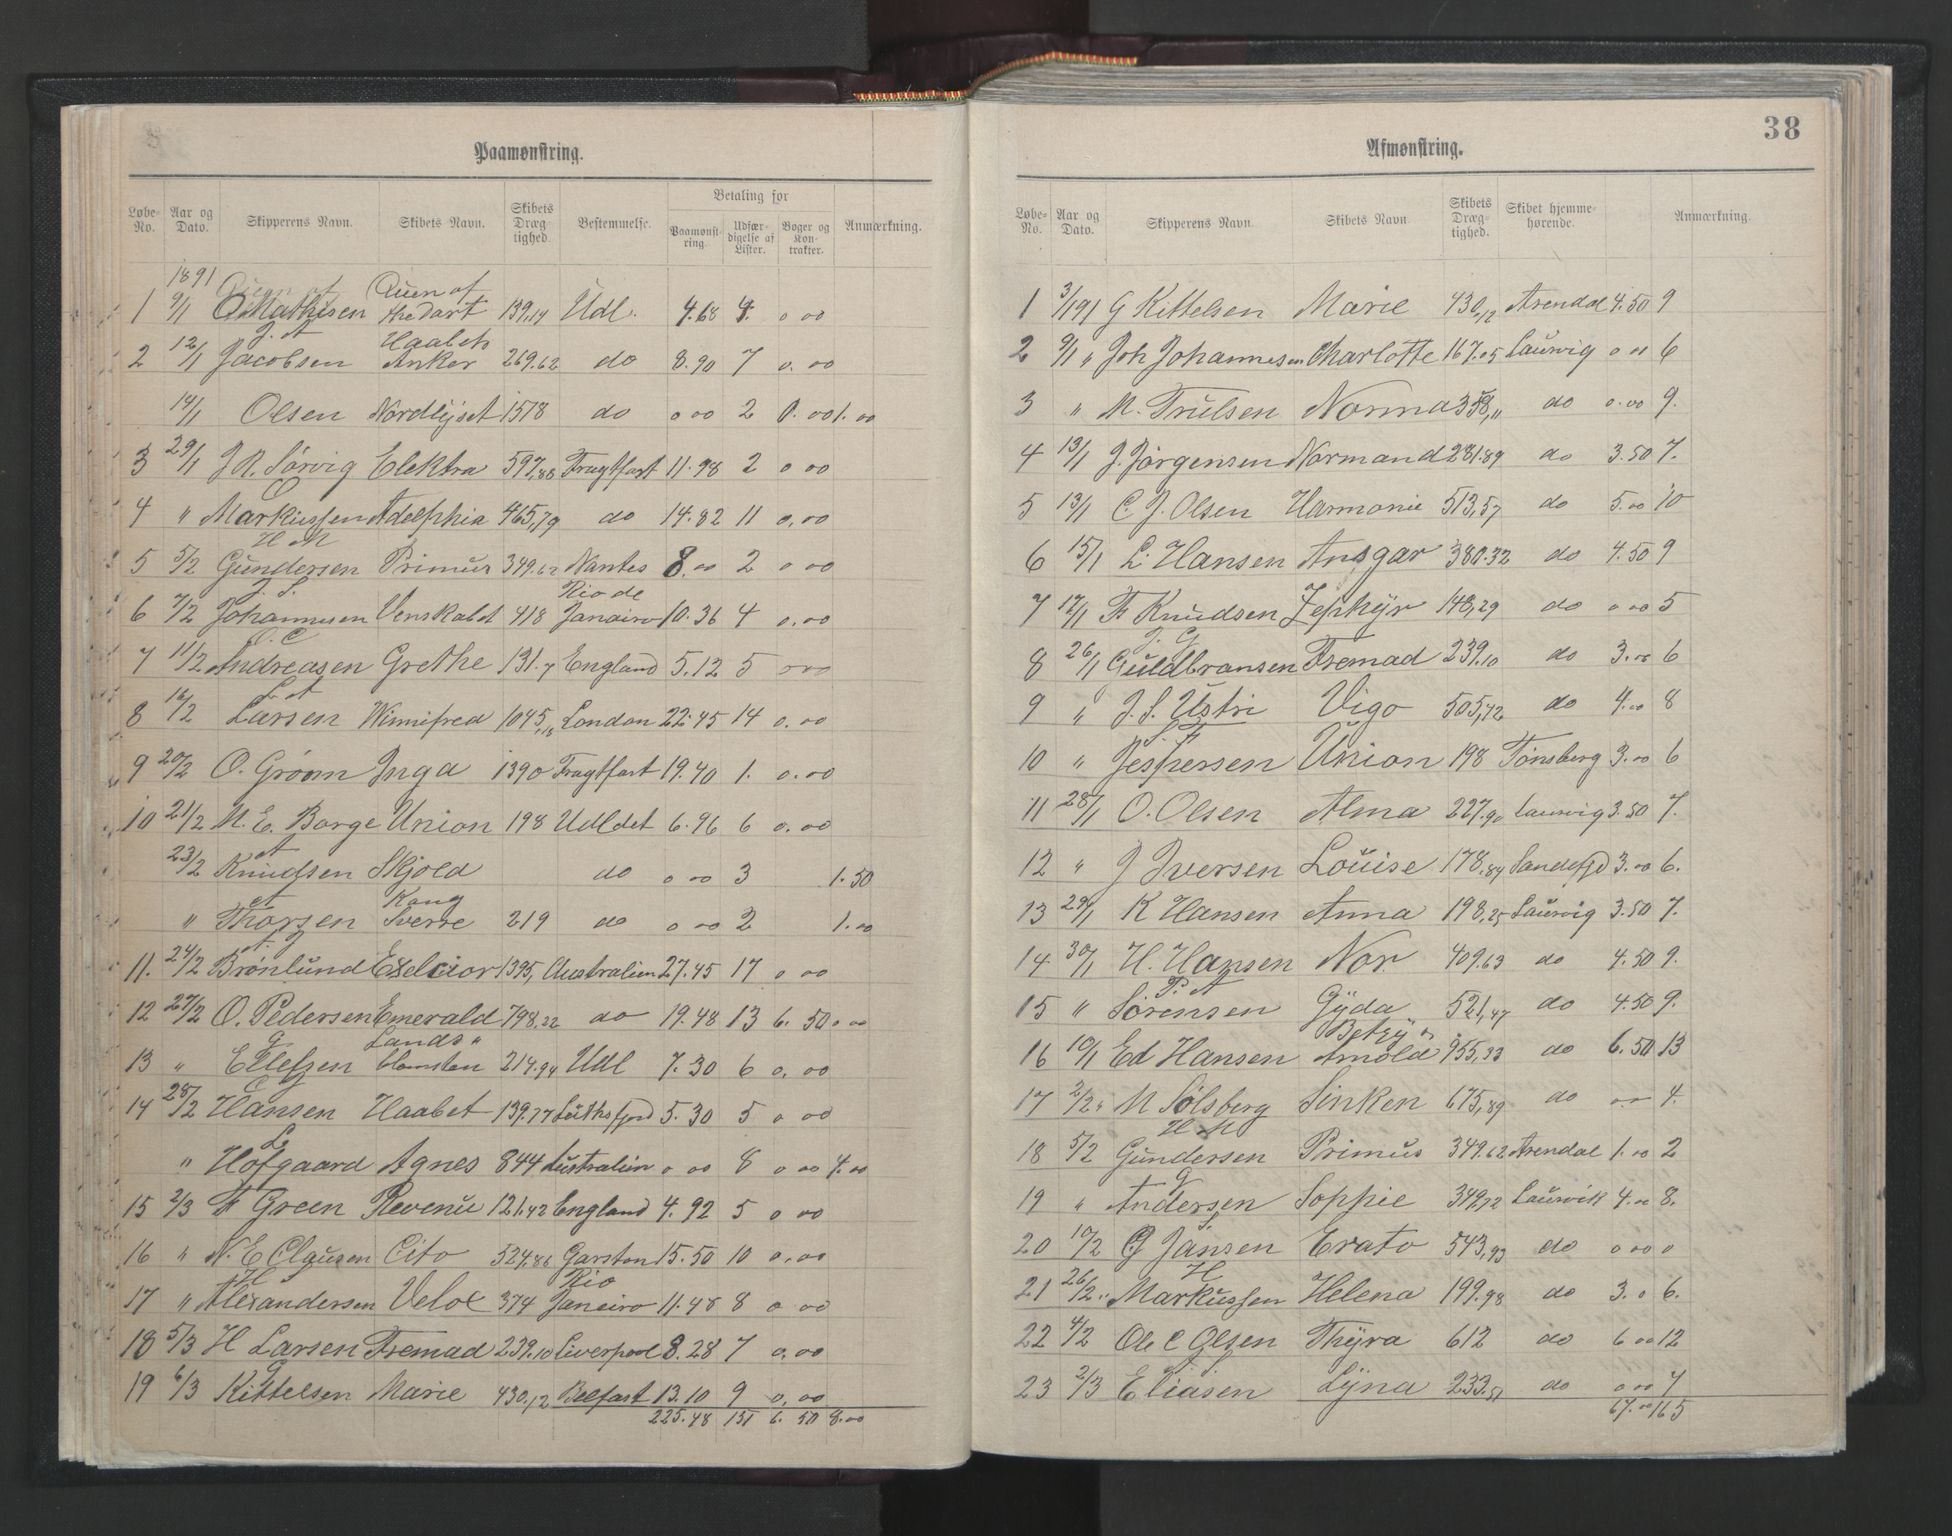 38
Paamønstring.
Løbe-No. Aar og Dato. Skipperens Navn. Skibets Navn. Skibets Dræg-tighed. Bestemmelse. Betaling for Paamønst-ring. Udfær-digelse af Lister. Bøger og Kon-trakter. Anmærkning.
1891
1 9/1 O Mathisen Quen of the dart 139,14 Udl. 4.68 4. 0 00
2 12/1 J. A Jacobsen Haabets Anker 269.62 do 8.90 7 0.00
14/1 Olsen Nordlyset 1518 do 0 00 2 0.00 1.00
3 29/1 J R. Sørvig Elektra 597,88 Fragtfart 11.98 2 0 00
4 " O Markussen Adelphia 465,79 do 14.82 11 0.00
5 5/2 H M Gundersen Primus 349.62 Nantes 8.00 2 0 00
6 7/2 J. S. Johannesen Venskabet 418 Rio de Janairo 10.36 4 0.00
7 11/2 O. C Andreasen Grethe 131.7 England 5.12 5 0 00
8 16/2 L. A Larsen Winnifred 1045,18 London 22.45 14 0.00
9 20/2 O. Grønn Inga 1390 Fragtfart 19.40 1. 0.00
10 21/2 M. E. Borge Union 198 Udldet 6.96 6 0.00
23/2 A Knudsen Skjold do 0 00 3 1.50
" A Thorsen Kong Sverre 219 do 0 00 2 1.00
11. 24/2 A. J Brønlund Exelcior 1395, Australien 27.45 17 0 00
12 27/2 O. Pedersen Emerald 798,22 do 19.48 13 6.50 0 00
13 " G Ellefsen Lands" blomsten 214.94 Udl 7.30 6 0.00
14 28/2 E G Hansen Haabet 139.77 5.30 5 0 00
" L Hofgaard Agnes 844 Australien 0 00 8 0 00 4.00
15 2/3 F Green Revenu 121.42 England 4.92 5 0 00
16 " N. E Clausen Cito 524.88 Garston 15.50 10 0.00
17 " H Alexandersen Velox 374 Rio Janeiro 11.48 8 0 00
18 5/3 H Larsen Fremad 239.10 Liverpool 8.28 7 0.00
19 6/3 G Kittelsen Marie 430,12 Belfast 13.10 9 0.00
225.48 151 6.50 8.00
Afmønstring.
Løbe-No. Aar og Dato. Skipperens Navn. Skibets Navn. Skibets Dræg-tighed. Skibet hjemme-hørende. Anmærkning.
1 3/1 91 G Kittelsen Marie 430,12 Arendal 4.50 9
2 9/1 " Joh Johannesen Charlotte 167.05 Laurvig 0 00 6
3 " M. Trulsen Norma 358,11 do 0.00 9.
4 13/1 J. Jørgensen Normand 281.89 do 3.50 7.
5 13/1 C J. Olsen Harmonie 513,57 do 5.00 10
6 15/1 L. Hansen Ansgar 380.32 do 4.50 9
7 17/1 F Knudsen Zephyr 148,29 do 0 00 5
8 26/1 J. G Guldbransen Fremad 239.10 do 3.00 6
9 " J. S. Ustri Vigo 505,72 do 4.00 8
10 " S. F Jespersen Union 198 Tønsberg 3.00 6
11 28/1 O. Olsen Alma 227.90 Laurvig 3.50 7.
12 " J Iversen Louise 178.84 Sandefjd 3.00 6.
13 29/1 K Hansen Anna 198,25 Laurvig 3.50 7.
14 30/1 H. Hansen Nor 409.63 do 4.50 9.
15 " P. A Sørensen Gyda 521,47 do 4.50 9.
16 10/1 Ed Hansen Betzy & Arnold 955,33 do 6.50 13
17 2/2 " M Sølsberg Sinken 675,89 do 0 00 4.
18 5/2 H. M Gundersen Primus 349.62 Arendal 1.00 2
19 " G Andersen Sophie 349,12 Laurvik 4.00 8.
20 10/2 G S. Jansen Erato 543,93 do 0 00 0
21 26/2 " H Markussen Helena 199.98 do 3.0 6.
22 4/2 Ole C Olsen Thyra 612 do 6 00 12
23 2/3 J. S. Eliasen Lyna 233.51 do 0 00 7
67.00 165